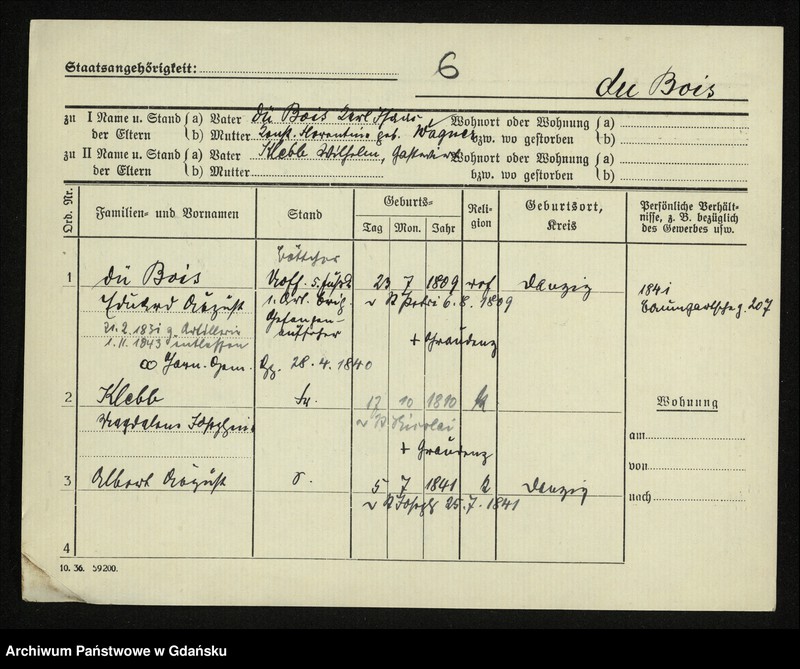 Staatsangehörigkeit:
6
du Bois
zu I Name u. Stand der Eltern
a) Vater dü Bois Carl
b) Mutter Florentine geb. Wagner
Wohnort oder Wohnung bzw. wo gestorben
a)
b)
zu II Name u. Stand der Eltern
a) Vater Klebb Wilhelm, Gastwirt
b) Mutter
Wohnort oder Wohnung bzw. wo gestorben
a)
b)
Ord. Nr.
Familien- und Vornamen
Stand
Geburts-
Tag Mon. Jahr
Religion
Geburtsort, Kreis
Persönliche Verhältnisse, z. B. bezüglich des Gewerbes usw.
Böttcher
1 dü Bois 23 7 1809 ref Danzig
Eduard August 1. Art. Brig.
v St Petri 6. 8. 1809
Gefangenaufseher
1. 11. 1843 entlassen
+ Graudenz
∞ 28. 4. 1840
1841
207
2 Klebb 12 10 1810 k
Magdalena Josephine
v St Nicolai
+ Graudenz
3 Albert August S. 5 7 1841 k Danzig
v St Joseph 25. 7. 1841
4
Wohnung
am
von
nach
10. 36. 59200.
Archiwum Państwowe w Gdańsku